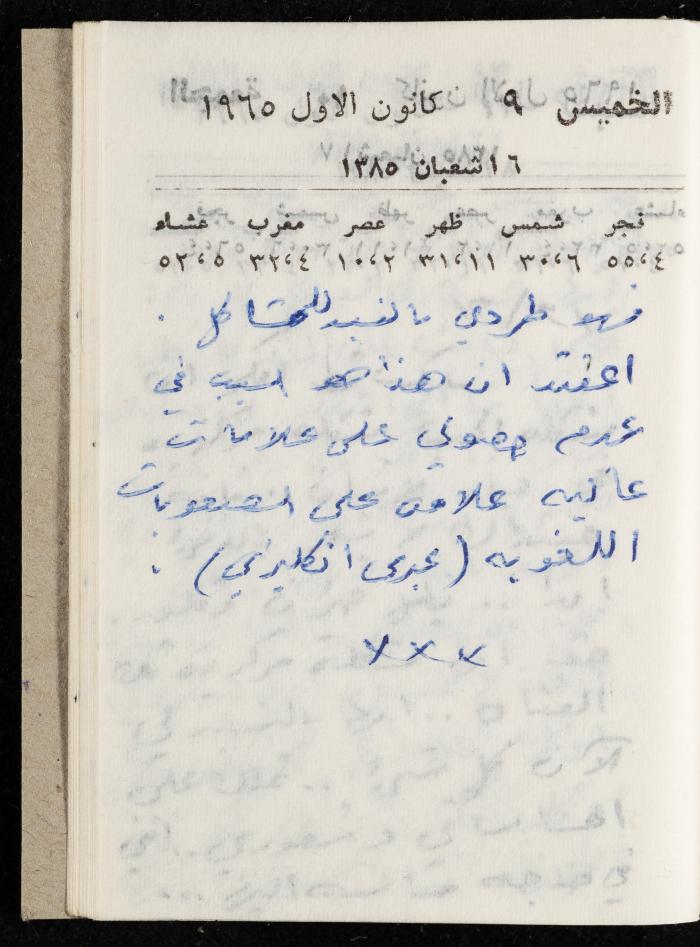 الخميس ٩ كانون الاول ١٩٦٥
١٦ شعبان ١٣٨٥
فجر شمس ظهر عصر مغرب عشاء
٤،٥٥ ٦،٣٠ ١١،٣١ ٢،١٠ ٤،٣٢ ٥،٥٢
فهو طردي بالنسبه للمشاكل .
اعتقد ان هذا هو السبب في
عدم حصولي على علامات
عاليه علاوه على الصعوبات
اللغويه (عبري انكليزي) .
×××